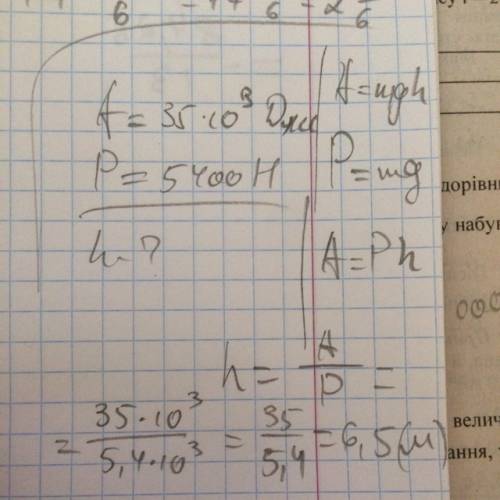 A = 35·10³ Дж
P = 5400 Н
h - ?
A = mgh
P = mg
A = Ph
h = A/P =
= 35·10³/5,4·10³ = 35/5,4 = 6,5 (м)
у набу
велич
ання,